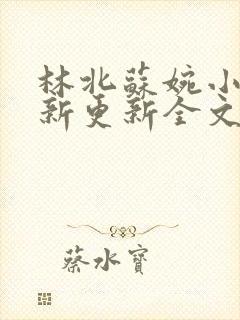 林北蘇婉小
新更新全文
蔡水寶